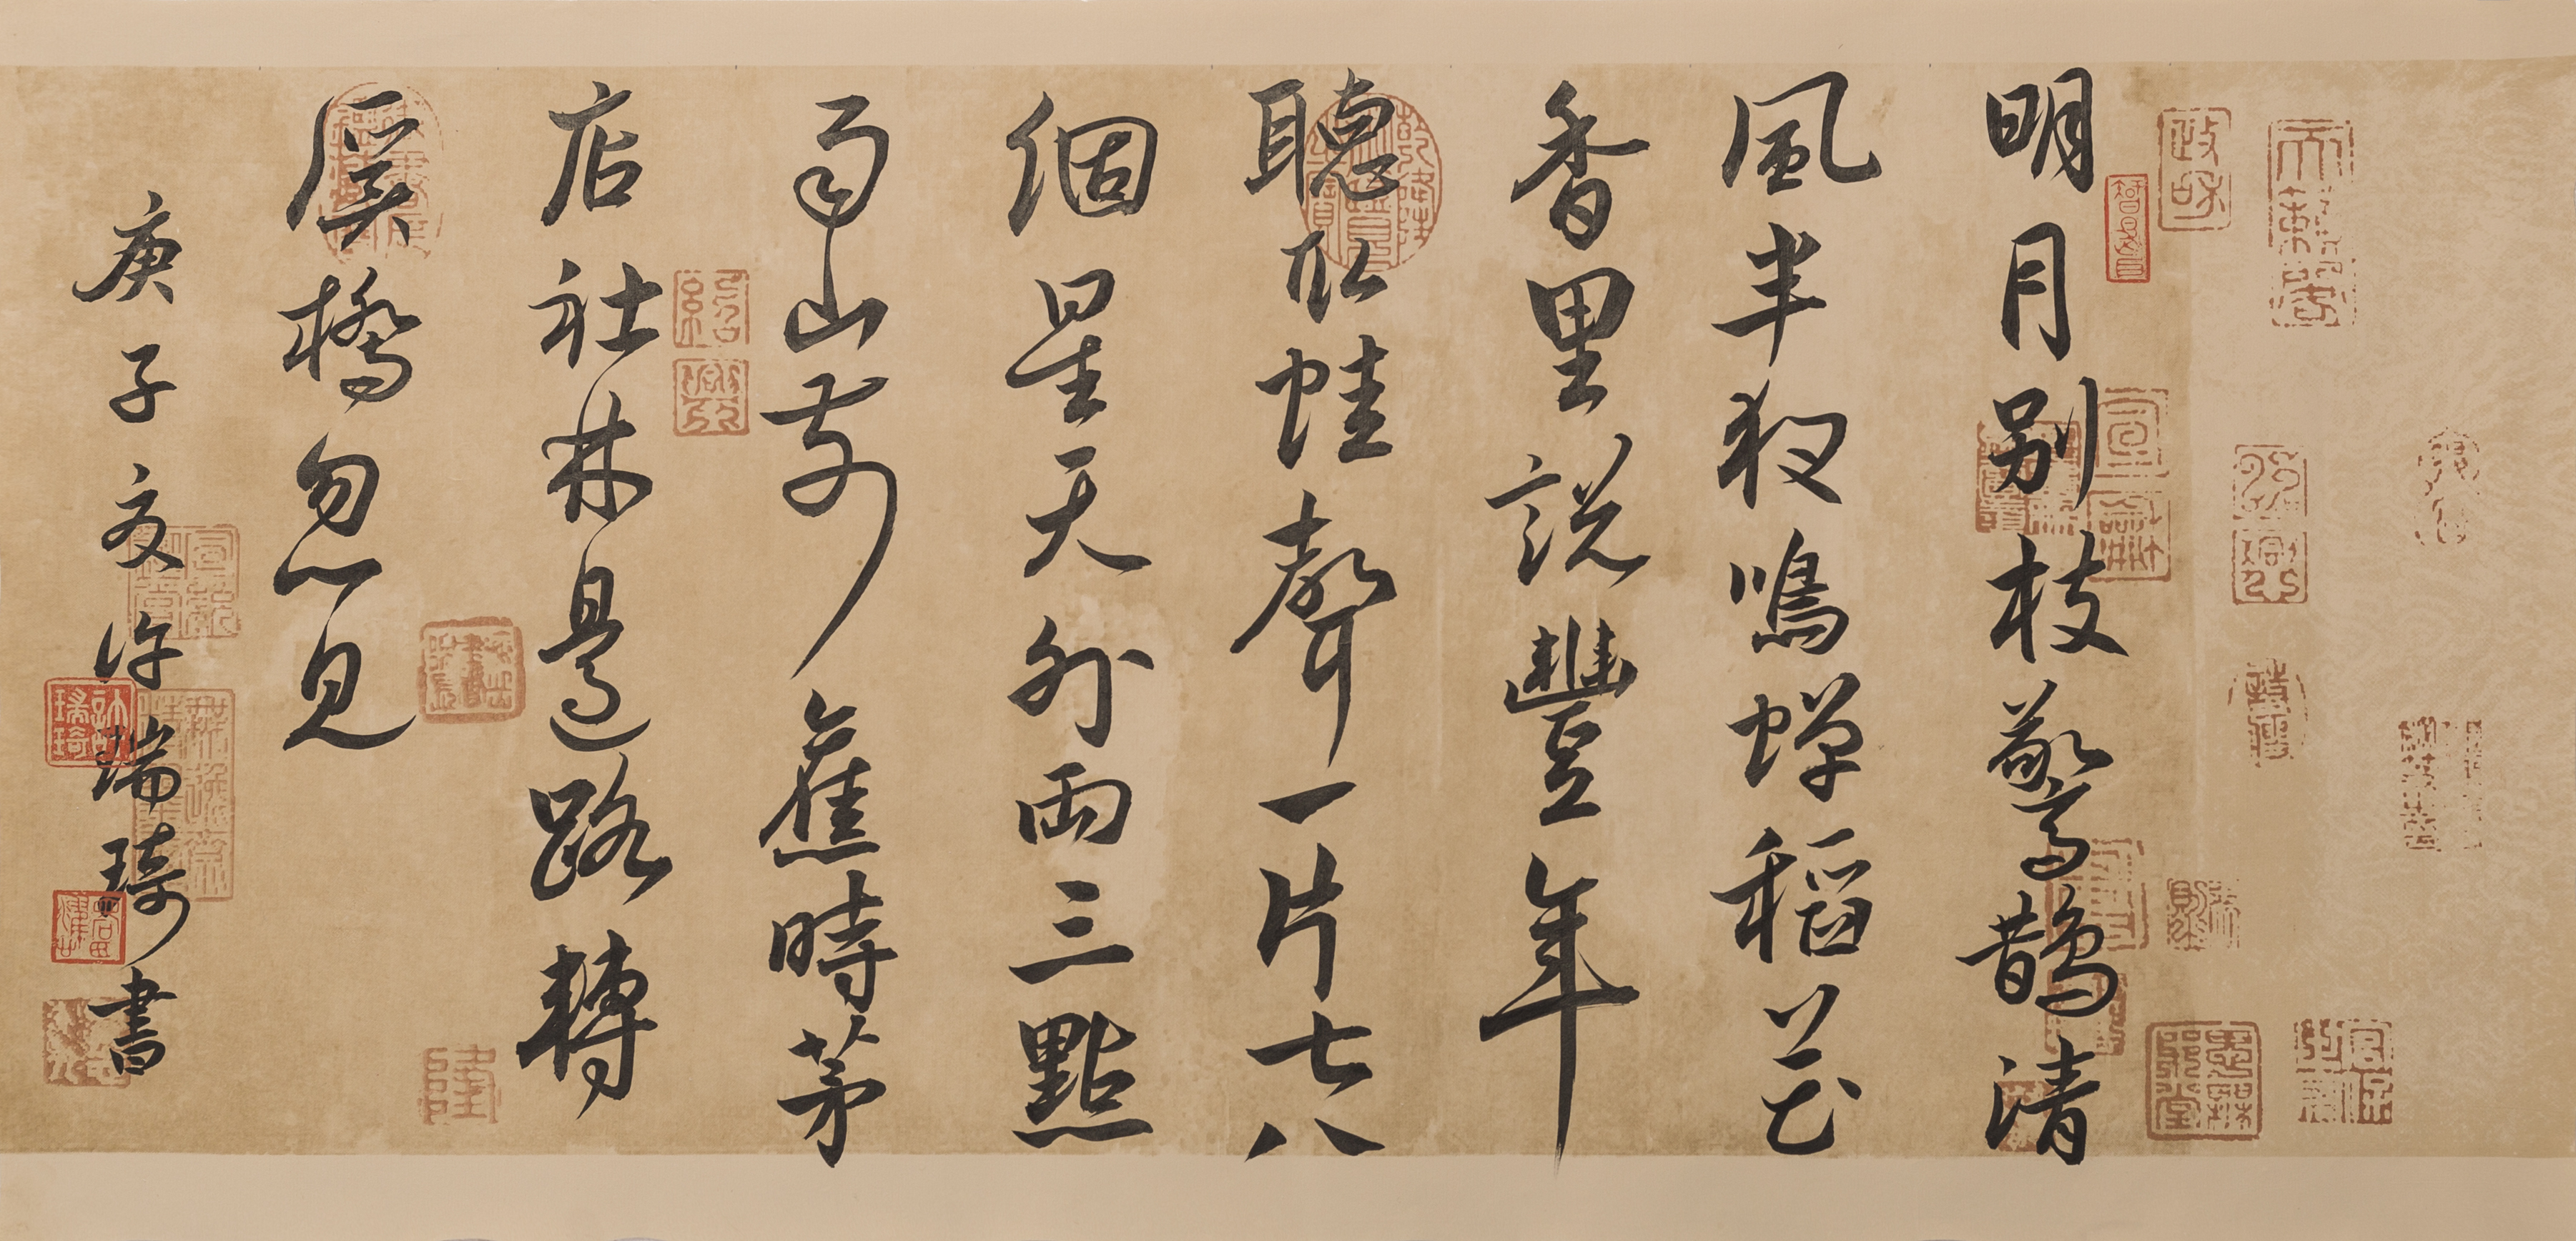 明月別枝驚鵲清
風半夜鳴蟬稻花
香里説豐年
聽取蛙聲一片七八
個星天外兩三點
雨山前舊時茅
店社林邊路轉
溪橋忽見
庚子夏許瑞琦書
政和
紹興
許瑞琦